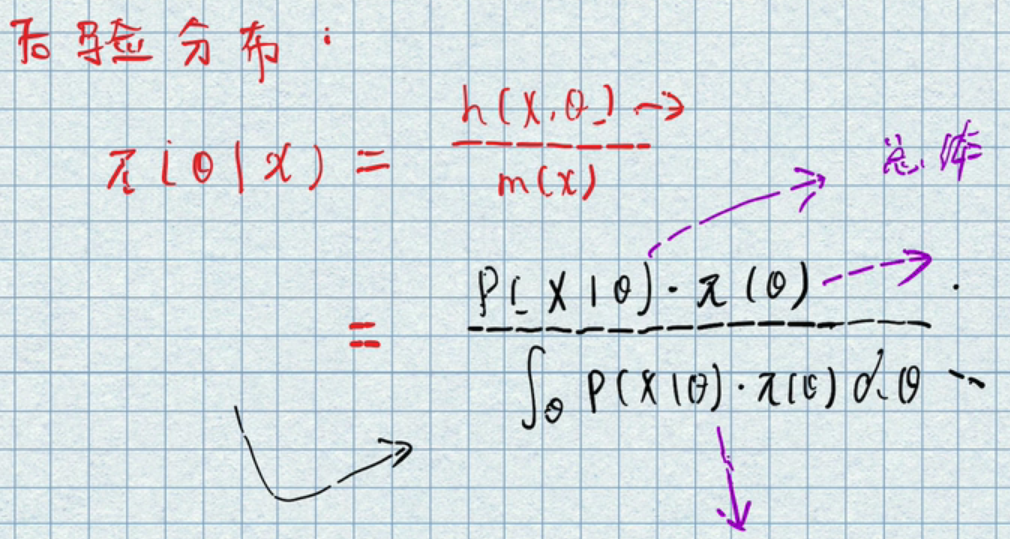 后验分布：
π(θ|x) = h(x,θ) / m(x)
总体
= P(x|θ)·π(θ) / ∫θ P(x|θ)·π(θ) dθ